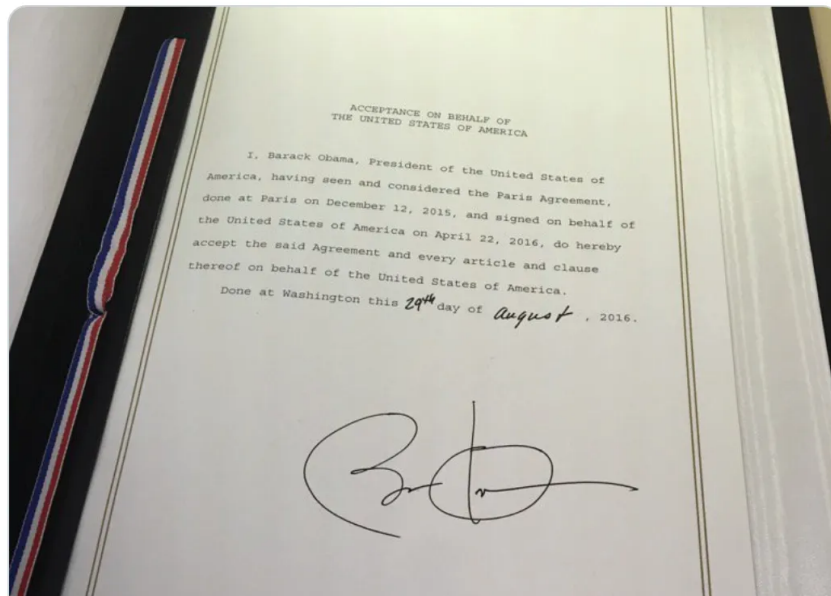 ACCEPTANCE ON BEHALF OF
THE UNITED STATES OF AMERICA
I, Barack Obama, President of the United States of
America, having seen and considered the Paris Agreement,
done at Paris on December 12, 2015, and signed on behalf of
the United States of America on April 22, 2016, do hereby
accept the said Agreement and every article and clause
thereof on behalf of the United States of America.
Done at Washington this 29th day of august , 2016.